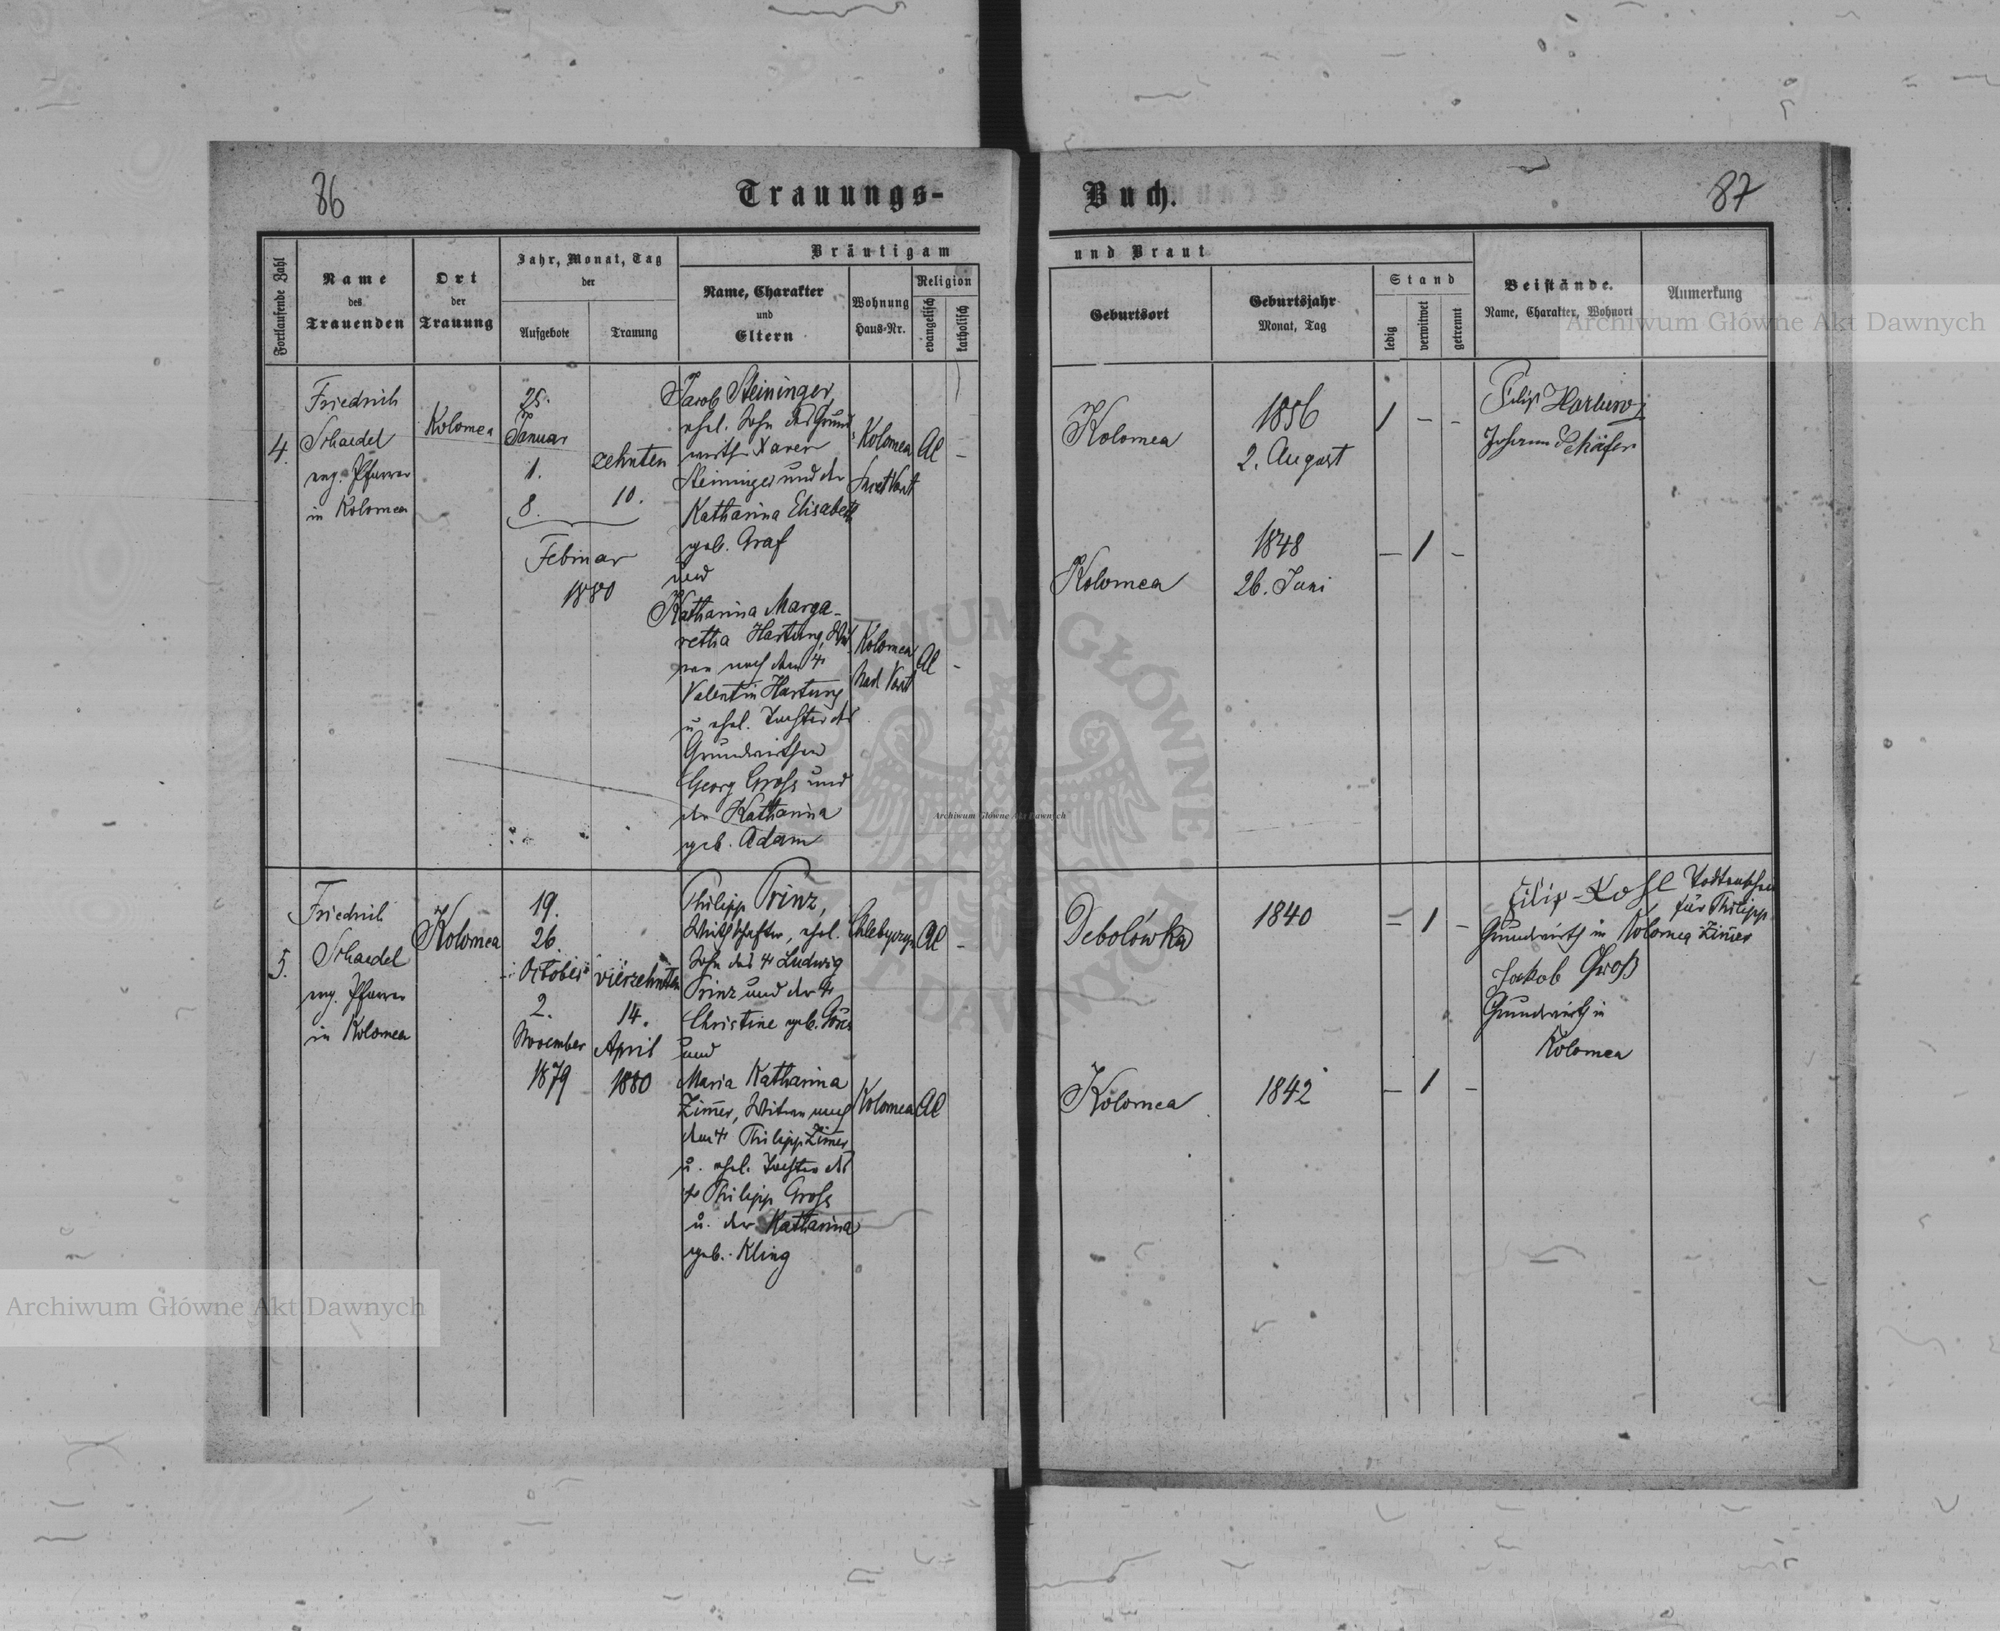 86
Trauungs-
Buch.
87
Fortlaufende Zahl
Name
des
Trauenden
Ort
der
Trauung
Jahr, Monat, Tag
der
Aufgebote
Trauung
Bräutigam
Name, Charakter
und
Eltern
Wohnung
Haus-Nr.
Religion
evangelisch
katholisch
und Braut
Geburtsort
Geburtsjahr
Monat, Tag
Stand
ledig
verwitwet
getrennt
Beistände.
Name, Charakter, Wohnort
Anmerkung
4.
Friedrich
Schaedel
evg. Pfarrer
in Kolomea
Kolomea
25.
Januar
1.
8.
Februar
1880
zehnten
10.
Jacob Steininger,
ehel. Sohn des Grund
wirth Xaver
Steininger und der
Katharina Elisabeth
geb. Graf
und
Katharina Marga-
retha Hartung,
nach dem
Valentin Hartung
u ehel. Tochter des
Grundwirthen
Georg Gross und
der Katharina
geb. Adam
Kolomea
AC
-
Kolomea
AC
-
Kolomea
1856
2. August
1 - -
Kolomea
1848
26. Juni
- 1 -
Filip
Johann Schäfer
5.
Friedrich
Schaedel
evg. Pfarrer
in Kolomea
Kolomea
19.
26.
October
2.
November
1879
vierzehnten
14.
April
1880
Philipp Prinz,
Wirthschafter, ehel.
Sohn des Ludwig
Prinz und der
Christine geb.
und
Maria Katharina
Zimer, Witwe nach
dem Philipp Zimer
u. ehel. Tochter des
Philipp Gross
u. der Katharina
geb. Kling
Chlebyczyn
AC
-
Kolomea
AC
Debolówka
1840
- 1 -
Kolomea
1842
- 1 -
Filip Kohl
Grundwirth in Kolomea
Jakob Groß
Grundwirth in
Kolomea
für Philipp
Zimer
Archiwum Główne Akt Dawnych
Archiwum Główne Akt Dawnych
Archiwum Główne Akt Dawnych